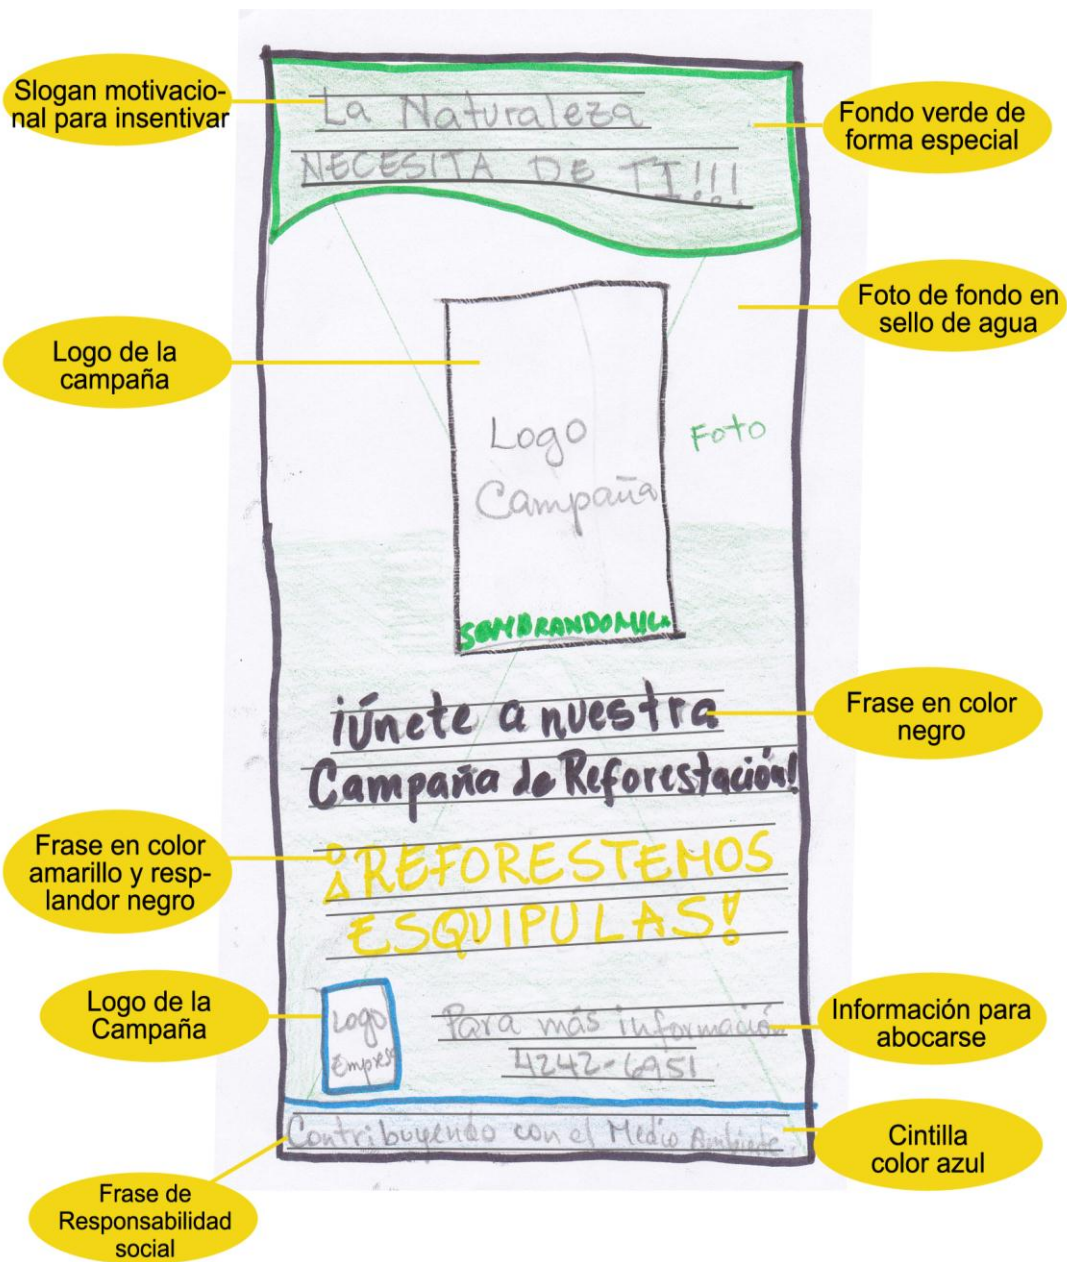 Slogan motivacio-
nal para insentivar
La Naturaleza
NECESITA DE TI!!!
Fondo verde de
forma especial
Foto de fondo en
sello de agua
Logo de la
campaña
Logo
Campaña
Foto
SEMBRANDO
¡Únete a nuestra
Campaña de Reforestación!
Frase en color
negro
Frase en color
amarillo y resp-
landor negro
¡REFORESTEMOS
ESQUIPULAS!
Logo de la
Campaña
Logo
Empresa
Para más información
4242-6951
Información para
abocarse
Contribuyendo con el Medio Ambiente
Cintilla
color azul
Frase de
Responsabilidad
social